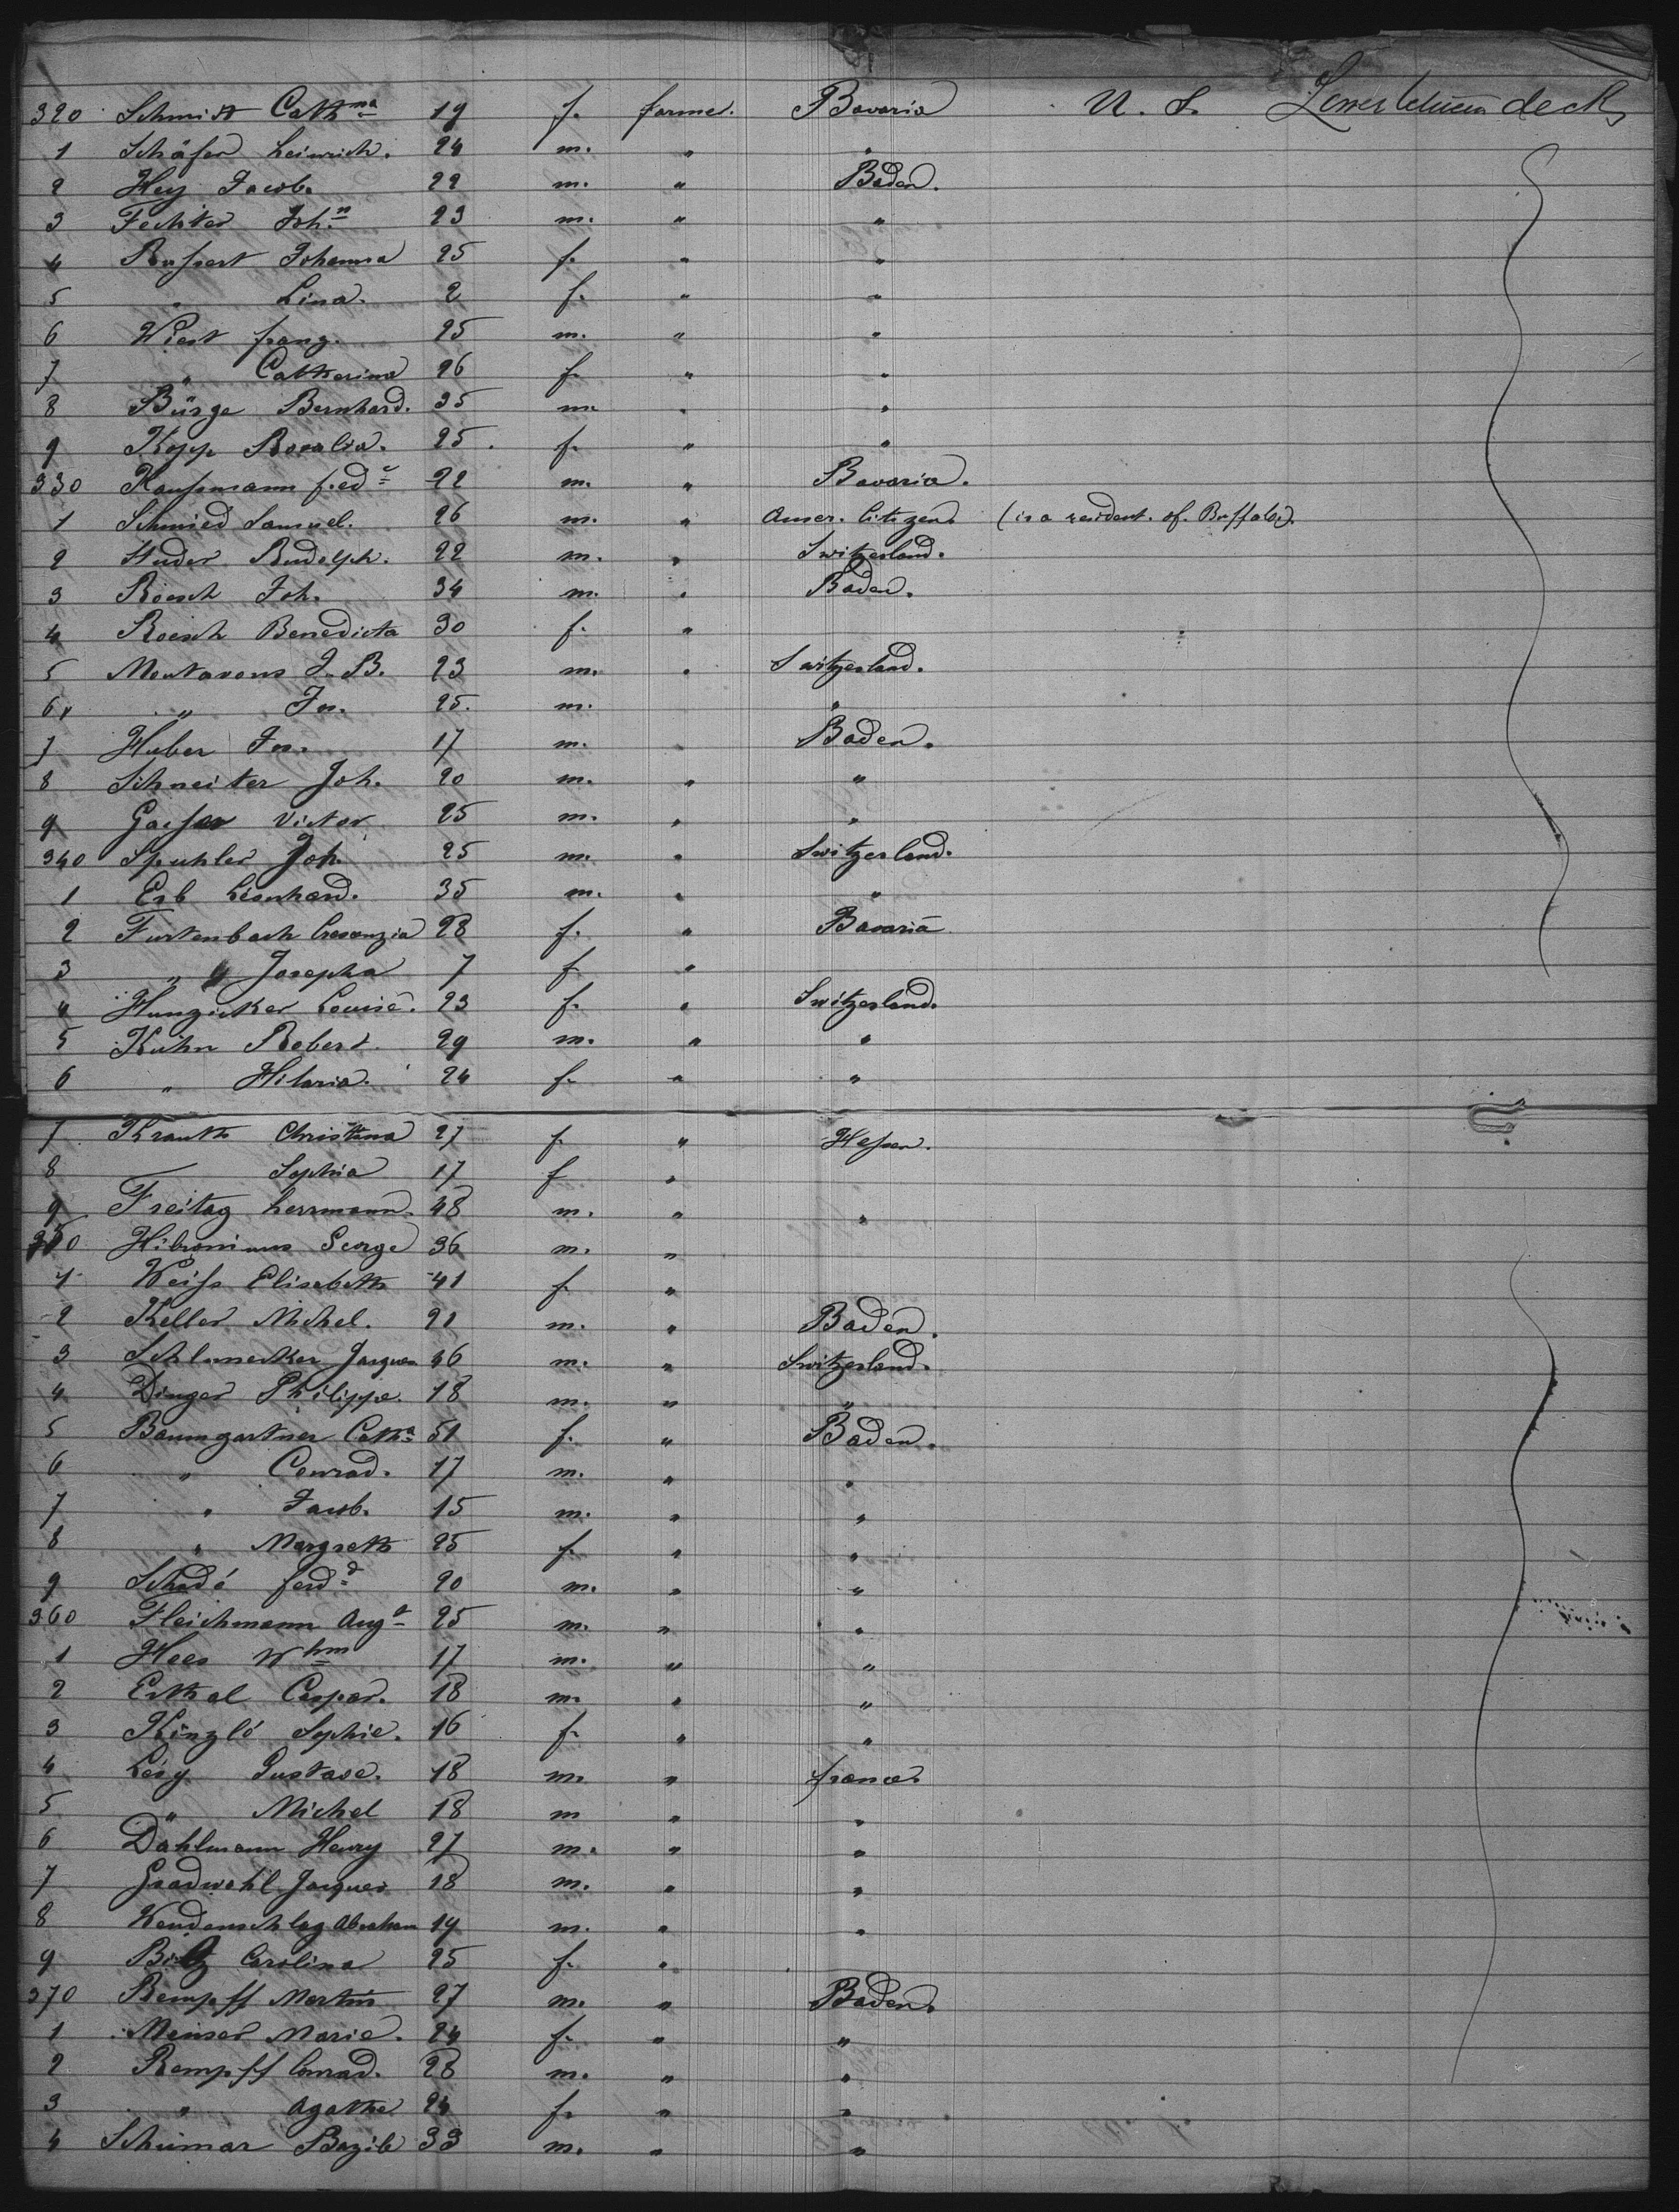 320 Schmidt Cathma 19 f. farmer. Bavaria U. S. Lower between deck,
1 Schäfer Heinrich. 24 m. " "
2 Hey Jacob. 22 m. " Baden.
3 Fechter Joh.n 23 m. " "
4 Rupert Johanna 25 f. " "
5 " Lina. 2 f. " "
6 Wiest franz. 25 m. " "
7 " Catherina 26 f. " "
8 Bürge Bernhard. 35 m. " "
9 Kopp Rosalia. 25. f. " "
330 Kaufmann f.ed 22 m. " Bavaria.
1 Schmied Samuel. 26 m. " Amer. Citizen. (is a resident. of. Buffalo).
2 Studer Rudolph. 22 m. " Switzerland.
3 Roesch Joh. 34 m. " Baden.
4 Roesch Benedicta 30 f. "
5 Montavons J. B. 23 m. " Switzerland.
6 " Jos. 25. m. "
7 Huber Jos. 17 m. " Baden.
8 Schneiter Joh. 20 m. " "
9 Victor 25 m. " "
340 Spuhler Joh. 25 m. " Switzerland.
1 Erb Lienhard. 35 m. " "
2 Furtenbach Cresenzia 28 f. " Bavaria
3 " Josepha 7 f. "
4 Hunzicker Louise. 23 f. " Switzerland.
5 Kuhn Robert. 29 m. " "
6 " Hilaria. 24 f. " "
7 Krauth Christina 27 f. " Hessen.
8 Sophia 17 f "
9 Freitag Herrmann. 48 m. " "
350 Hieronimus George 36 m. "
1 Weiss Elisabeth 41 f. "
2 Keller Michel. 21 m. " Baden.
3 Schlunecker Jacques 36 m. " Switzerland.
4 Dinger Philippe. 18 m. " "
5 Baumgartner Catha 51 f. " Baden.
6 " Conrad. 17 m. " "
7 " Jacob. 15 m. " "
8 " Margreth 25 f. " "
9 Schadé ferdd 20 m. " "
360 Fleichmann Augt 25 m. " "
1 Hees Whm 17 m. " "
2 Erthal Caspar. 18 m. " "
3 Kinzlé Sophie. 16 f. " "
4 Lévy Gustave. 18 m. " france.
5 " Michel 18 m " "
6 Dahlmann Henry 27 m. " "
7 Gradwohl Jacques 18 m. " "
8 Wendenschlag Abraham 19 m. " "
9 Carolina 25 f. "
370 Rempff Martin 27 m. " Baden.
1 Menser Marie. 24 f. " "
2 Rempff Conrad. 28 m. " "
3 " Agathe 24 f. " "
4 Schumar Bazile 33 m. " "